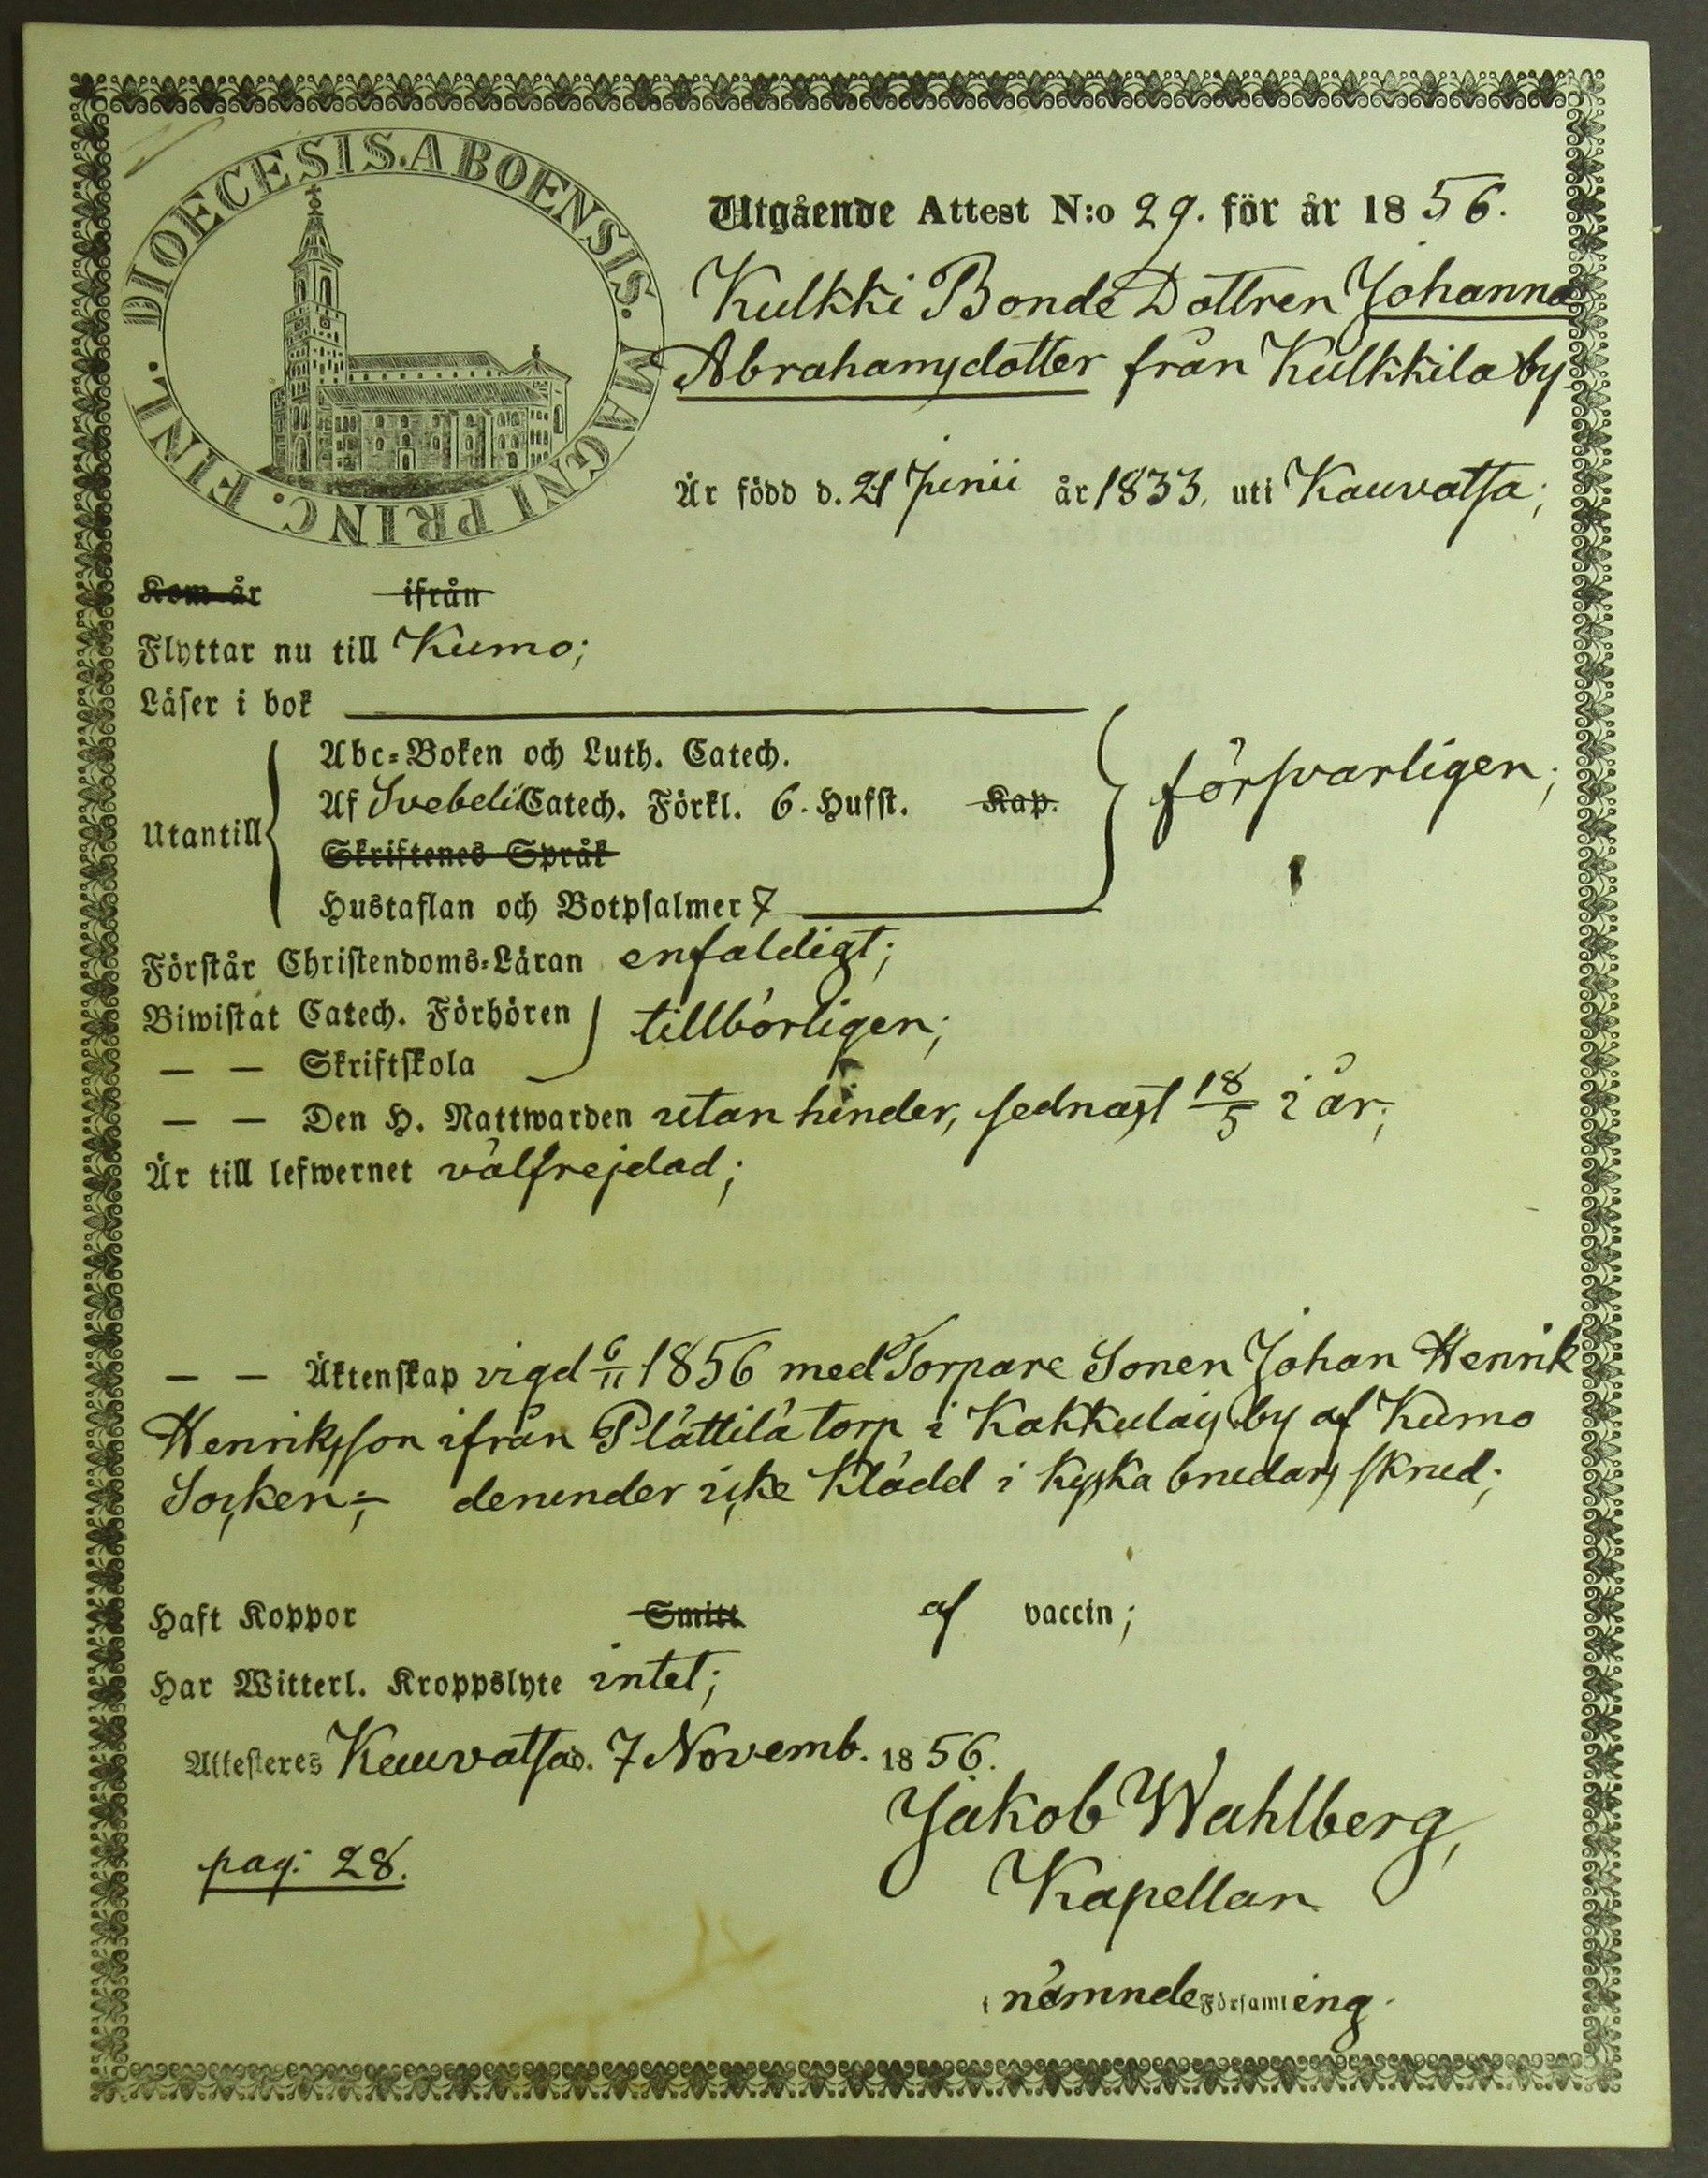 DIOECESIS. ABOENSIS. MAGNI PRINC. FINL.
Utgående Attest N:o 29. för år 1856.
Kulkki Bonde Dottren Johanna
Abrahamsdotter från Kulkkila by
Är född d. 21 Junii år 1833. uti Kauvatsa;
Kom år ifrån
Flyttar nu till Kumo;
Läser i bok
Abc-Boken och Luth. Catech.
Utantill Af Svebelii Catech. Förkl. 6. Hufst. Kap. försvarligen;
Skriftenes Språk
Hustaflan och Botpsalmer 7
Förstår Christendoms-Läran enfaldigt;
Biwistat Catech. Förhören tillbörligen;
— — Skriftskola
— — Den H. Nattwarden utan hinder, sednast 18/5 i år;
Är till lefwernet välfrejdad;
— — Äktenskap vigd 6/11 1856 med Torpare Sonen Johan Henrik
Henriksson ifrån Plättilä torp i Kakkulais by af Kumo
Socken;– derunder icke klädd i kyska brudars skrud;
Haft Koppor Smitt af vaccin;
Har Witterl. Kroppslyte intet;
Attesteres Kauvatsa d. 7 Novemb. 1856.
Jakob Wahlberg,
pag: 28.
Kapellan
i nämnde Församling.